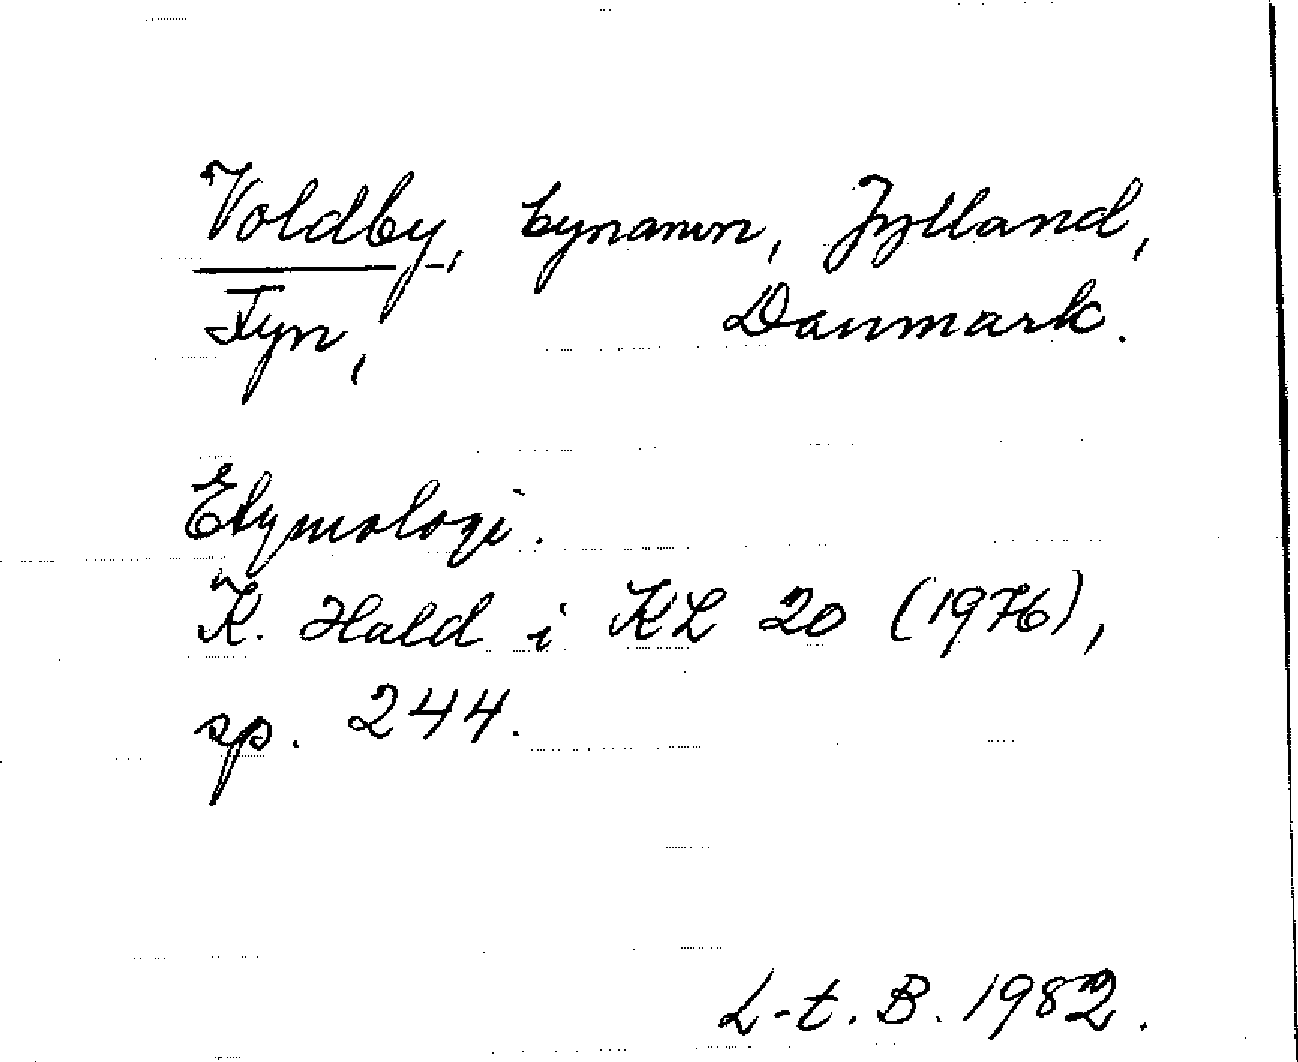 Voldby, bynamn, Jylland,
Fyn, Danmark.
Etymologi.
K. Hald i KL 20 (1976),
sp. 244.
L-t. B. 1982.